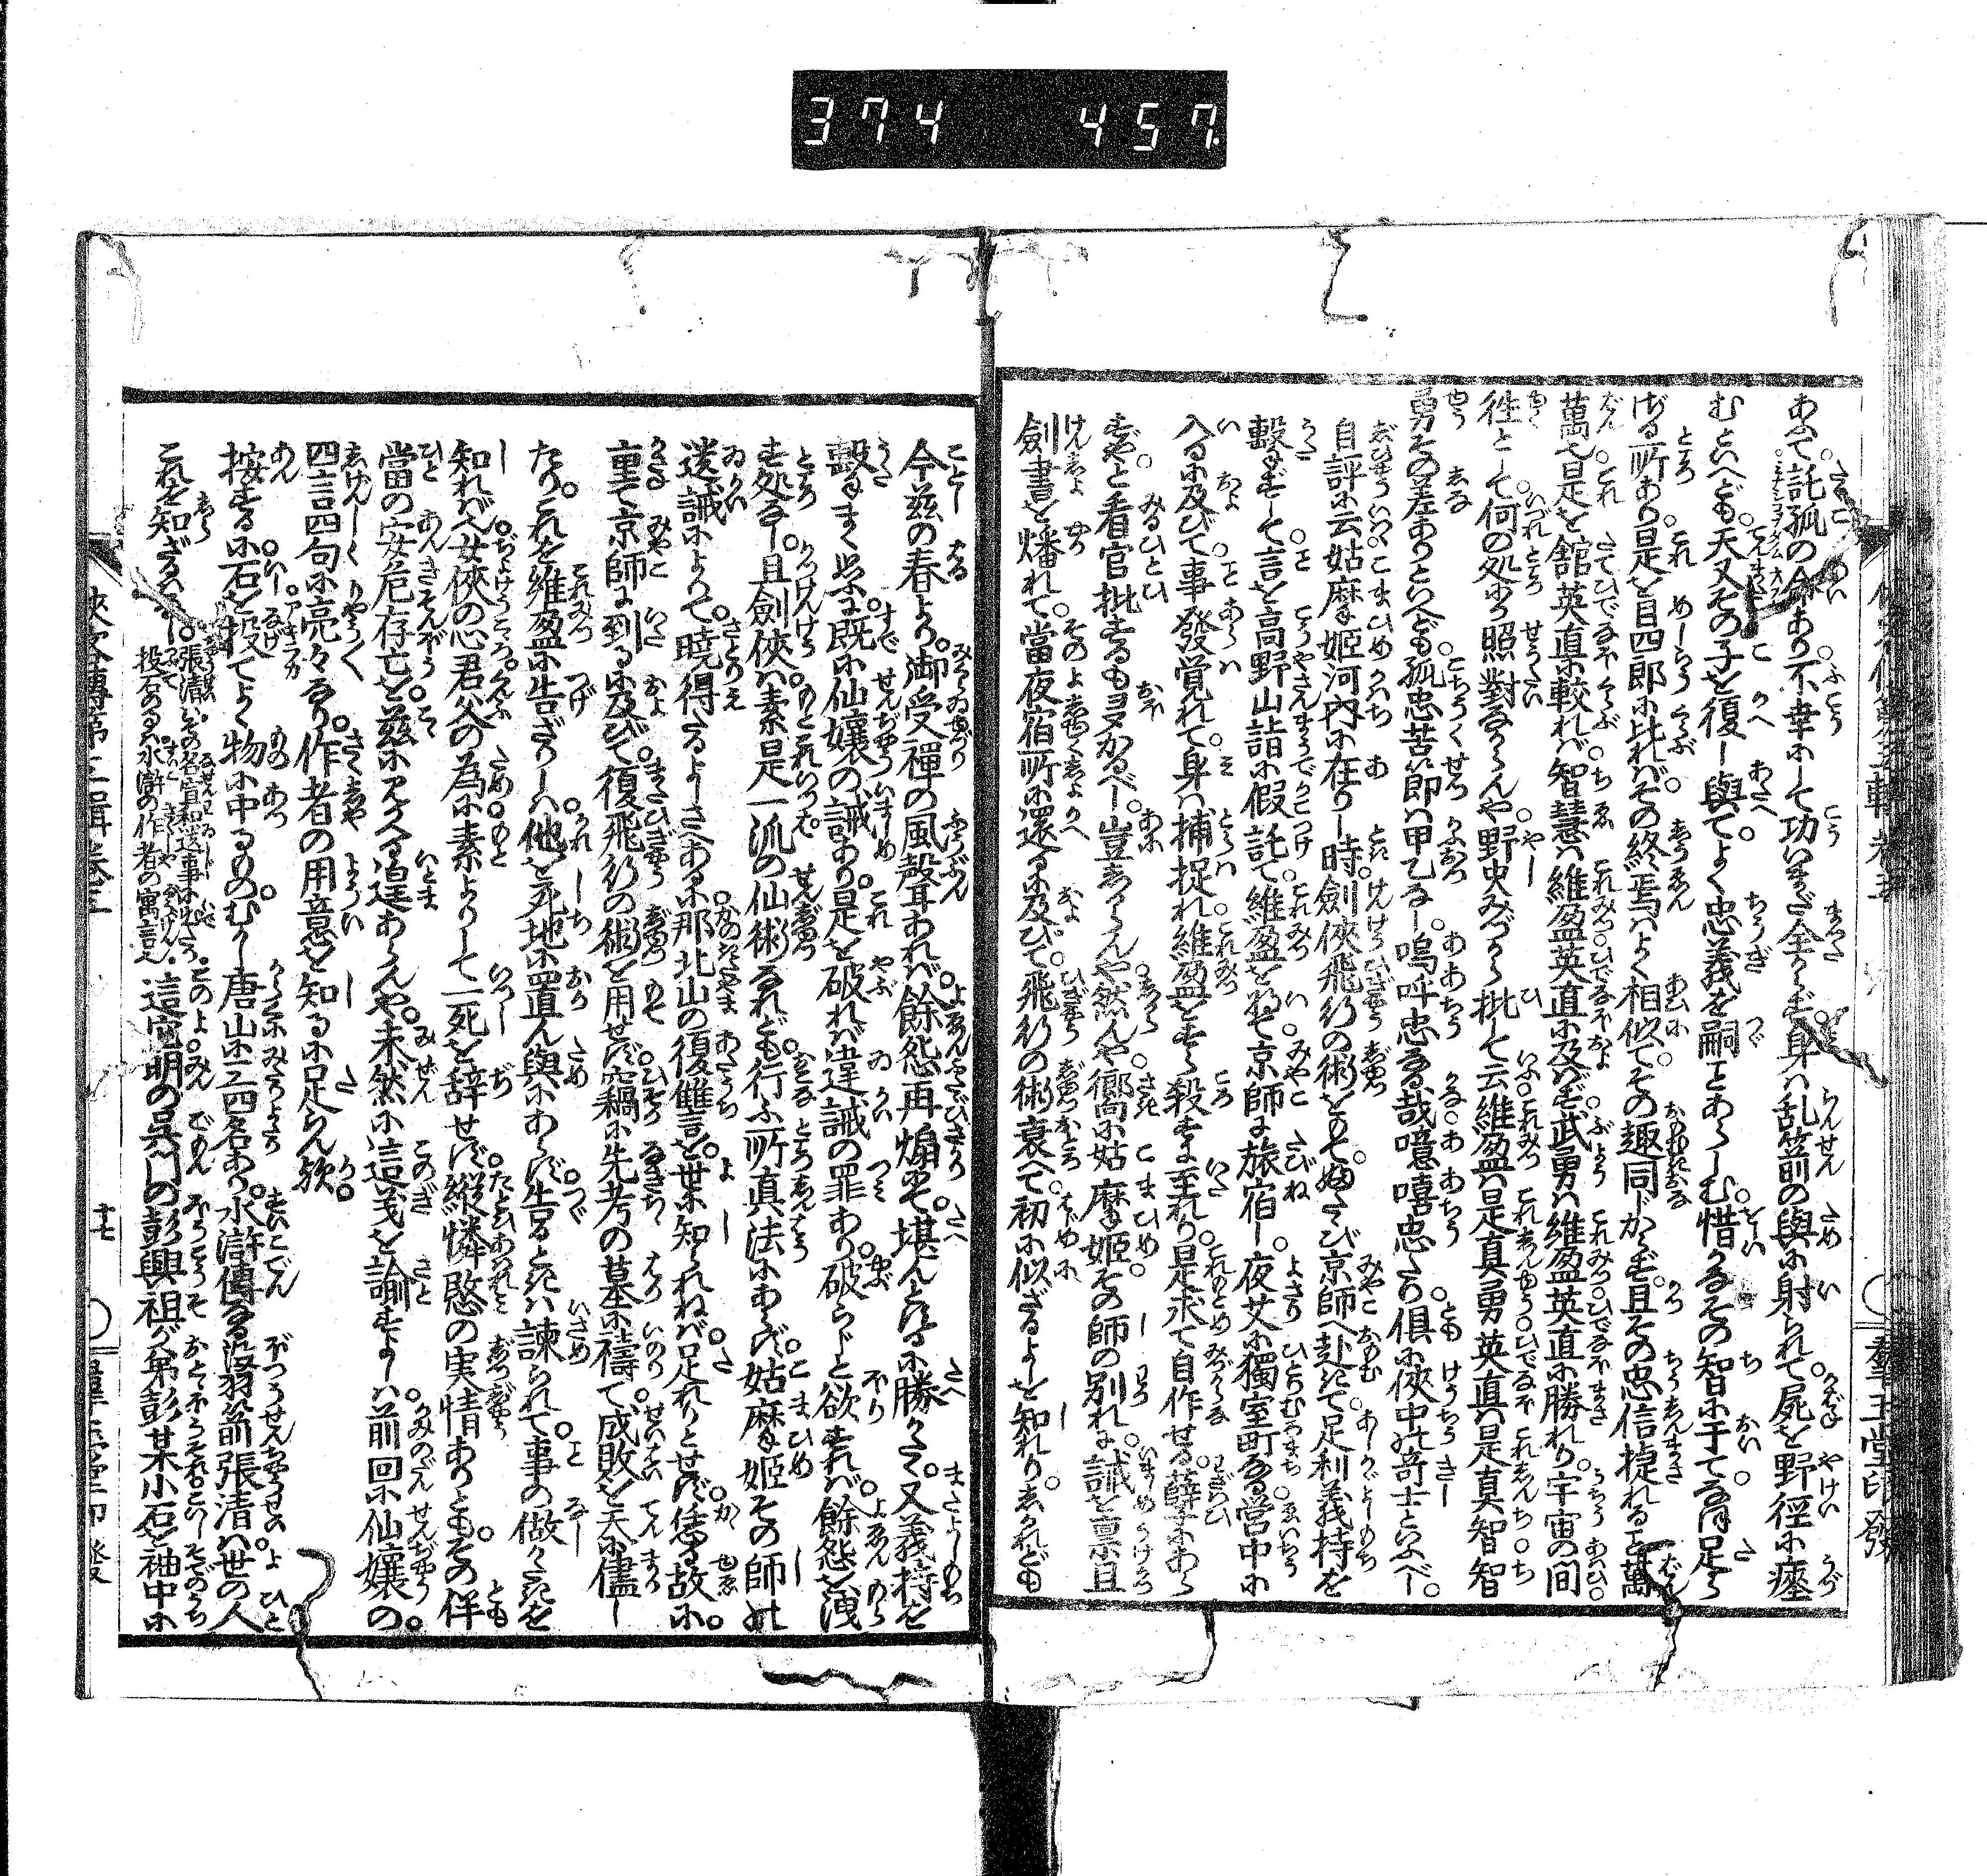 374 457
あて。託孤の命あり。不幸にして功いまだ全からず。身は乱箭の與に射られて。屍を野徑に瘞
むといへども。天又その子を復し與て。よく忠義を嗣ことあらしむ。惜かなその智に于て。なほ足ら
ざる所あり。是を目四郎に比ぶれば。その終焉はよく相似て。その趣同じからず。且その忠信捷れること萬
萬也。是を館英直に較れば。智慧は維盈英直に及ばず。武勇は維盈英直に勝れり。宇宙の間
徃として。何の処にか照對なからんや。野史みづから批して云。維盈は是真勇。英直は是真智。智
勇その差ありといへども。孤忠苦節は即甲乙なし。嗚呼忠なる哉。噫嘻忠なり。倶に俠中の竒士といふべし。
自評に云。姑摩姫河内に在りし時。劍俠飛行の術をもて。ふたゝび京師へ赴きて。足利義持を
擊まくせしことを。高野山詣に假託て。維盈をゐて京師に旅宿し。夜艾に獨室町なる營中に
入るに及びて。事發覚れて。身は捕捉れ。維盈をすら殺すに至れり。是求て自作せる孽にあら
ずや。と看官批するもヨヌカルべし。豈しからんや然んや。嚮に姑摩姫。その師の別れに誡を禀。且
劍書を燔れて。當夜宿所に還るに及びて。飛行の術衰へて。初に似ざるよしを知れり。しかれども
今茲の春より。御受禪の風聲耳あれば。餘怨再煽にて。堪んとするに勝かたく。又義持を
擊まく思ふに。既に仙孃の誡あり。是を破れば違誡の罪あり。破らじと欲すれば。餘怨を洩
す処なし。且劍俠は。素是一流の仙術なれども。行ふ所真法にあらず。姑摩姫その師の
遺誡によりて。曉得たるよしさへあるに。那北山の復讐を。世に知られねば足れりとせず。恁る故に。
重て京師に到るに及びて。復飛行の術を用せず。竊に先考の墓に禱て。成敗を天に儘し
たり。これを維盈に告ざりしは。他を死地に置ん與にあらず。告るときは諫られて。事の做かたきを
知れば也。女俠の心。君父の為に。素よりして一死を辞せず。縱憐愍の実情ありとも。その伴
當の安危存亡を。茲に思へる遑あらんや。未然に這義を諭すよしは。前回に仙孃の
四言四句に亮々たり。作者の用意を知るに足らん歟。
按するに。石を投てよく物に中るもの。むかし唐山に三四名あり。水滸傳なる沒羽箭張清は。世の人
これを知ざるはなし。張淸が名。宣和遺事に出たり。投石のことは。水滸の作者の寓言也。這它明の呉門の彭興祖が弟彭某。小石を袖中に
俠客傳第三輯卷三 十七 群玉堂印發
群玉堂印發